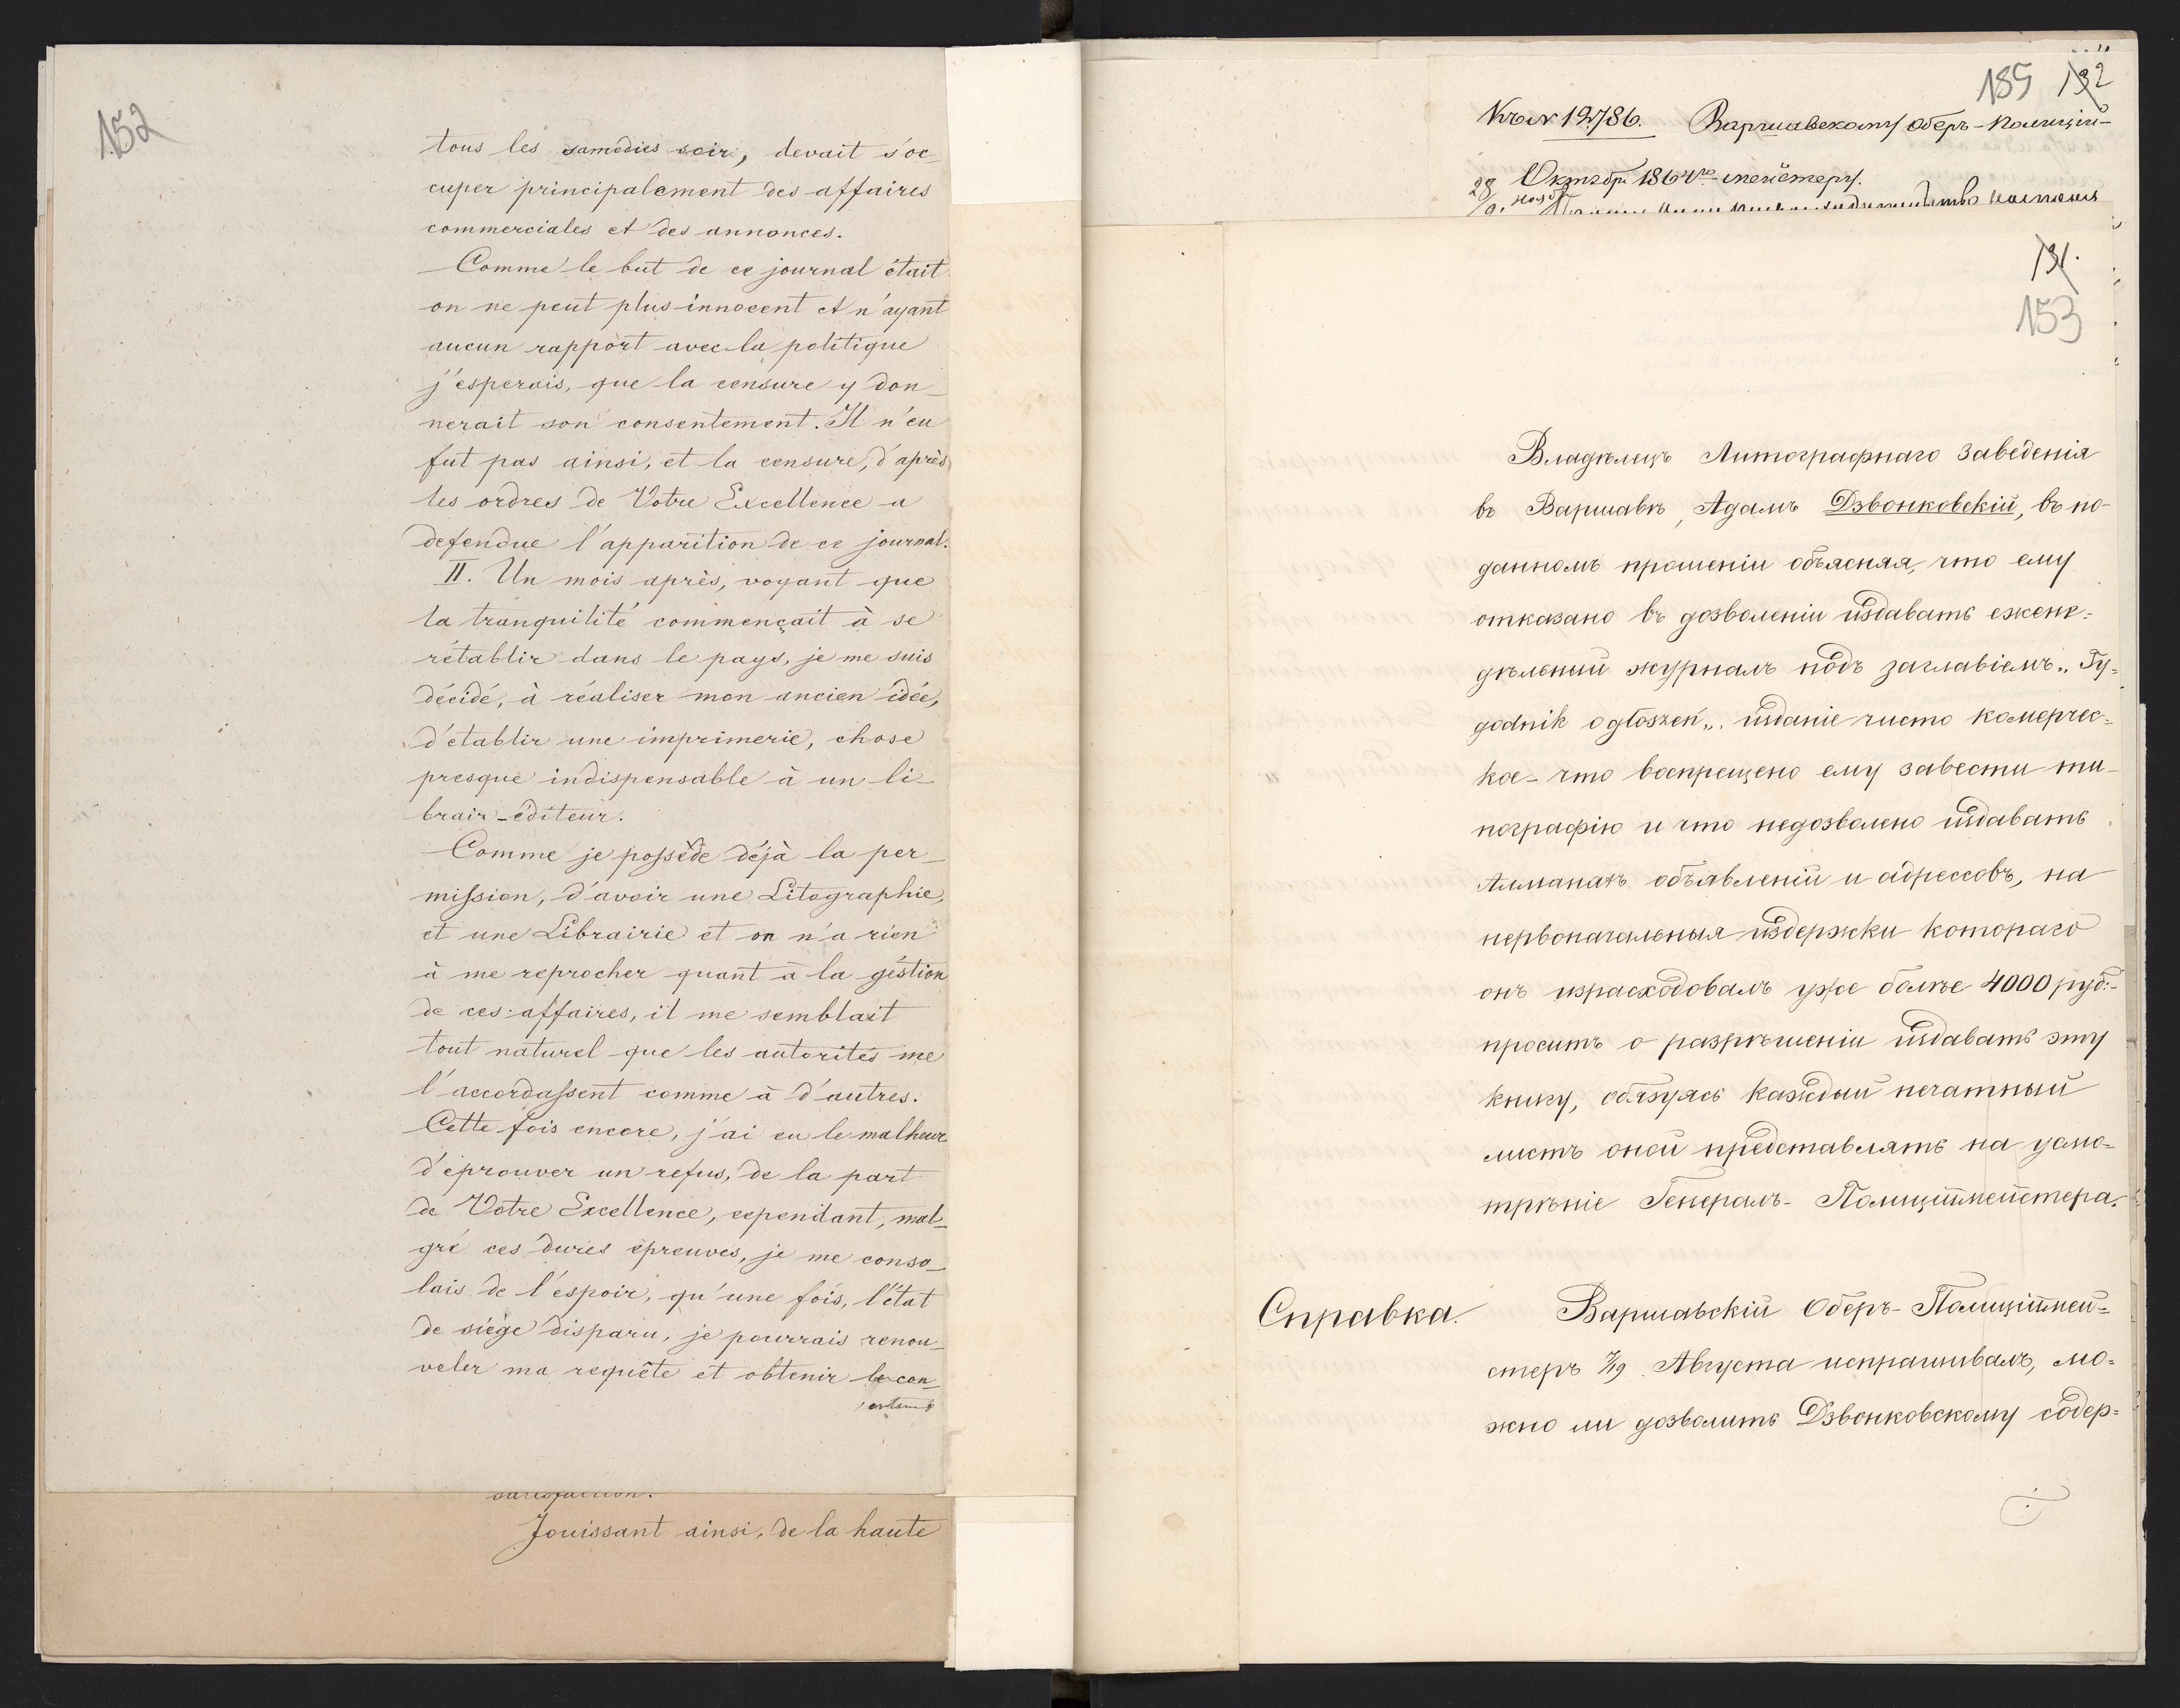 152
tous les samedies soir, devait s'oc-
cuper principalement des affaires
commerciales et des annonces.
Comme le but de ce journal était
on ne peut plus innocent et n'ayant
aucun rapport avec la politique
j'esperais, que la censure y don-
nerait son consentement. Il n'en
fut pas ainsi, et la censure, d'après
les ordres de Votre Excellence a
defendue l'apparition de ce journal.
II. Un mois après, voyant que
la tranquilité commençait à se
rétablir dans le pays, je me suis
décidé, à réaliser mon ancien idée,
d'établir une imprimerie, chose
presque indispensable à un li-
brair-éditeur.
Comme je possède déjà la per-
mission, d'avoir une Litographie,
et une Librairie et on n'a rien
à me reprocher quant à la géstion
de ces affaires, il me semblait
tout naturel que les autorités me
l'accordassent comme à d'autres.
Cette fois encore, j'ai eu le malheur
d'éprouver un refus, de la part
de Votre Excellence, cependant, mal-
gré ces dures épreuves, je me conso-
lais de l'espoir, qu'une fois, l'état
de siège disparu, je pourrais renou-
veler ma requête et obtenir le con-
satisfaction.
Jouissant ainsi, de la haute
185 132
Къ № 12786. Варшавскому Оберъ-Полицій-
28 Октябр 186 мейстеру.
131.
153
Владѣлецъ Литографнаго Заведенія
въ Варшавѣ, Адамъ Дзвонковскій, въ по-
данномъ прошеніи объясняя, что ему
отказано въ дозволеніи издавать ежене-
дѣльный журналъ подъ заглавіемъ „Ty-
godnik ogłoszeń„ изданіе чисто комерчес-
кое - что воспрещено ему завести ти-
пографію и что недозволено издавать
Алманахъ объявленій и адрессовъ, на
первоначальныя издержки котораго
онъ израсходовалъ уже болѣе 4000 руб:-
проситъ о разрѣшеніи издавать эту
книгу, обязуясь каждый печатный
листъ оной представлять на усмо-
трѣніе Генералъ-Полиціймейстера.
Справка. Варшавскій Оберъ-Полиціймей-
стеръ 7/19 Августа испрашивалъ, мо-
жно ли дозволить Дзвонковскому содер-